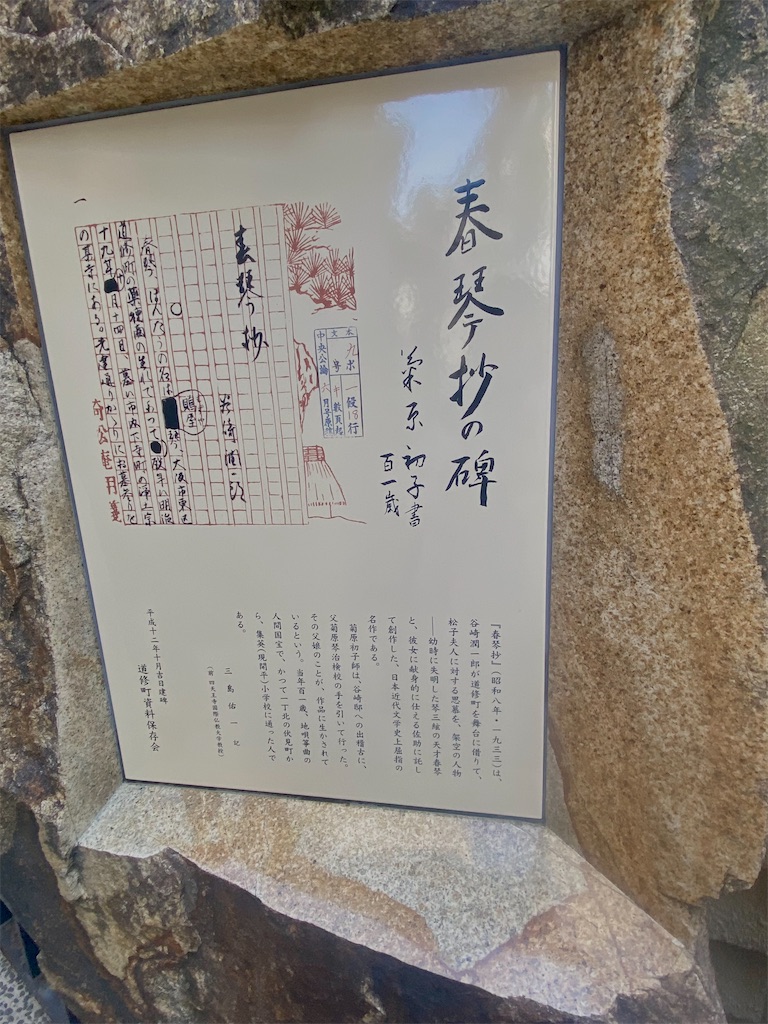 春琴抄の碑
菊原初子書
百一歳
本文 九ポ 一段 18行
中央公論 六月号原稿
春琴抄
谷崎潤一郎
春琴、ほんたうの名は
鵙屋
琴、大阪市東区
道修町の薬種商の生れで
歿年は明治
十九年
月十四日、墓は市内下寺町の浄土宗
の某寺にある。先達通りかゝりにお墓参りを
一
『春琴抄』(昭和八年・一九三三)は、
谷崎潤一郎が道修町を舞台に借りて、
松子夫人に対する思慕を、架空の人物
――幼時に失明した琴三絃の天才春琴
と、彼女に献身的に仕える佐助に託し
て創作した、日本近代文学史上屈指の
名作である。
菊原初子師は、谷崎邸への出稽古に、
父菊原琴治検校の手を引いて行った。
その父娘のことが、作品に生かされて
いるという。当年百一歳、地唄箏曲の
人間国宝で、かつて一丁北の伏見町か
ら、集英(現開平)小学校に通った人で
ある。
三島佑一 記
(前 四天王寺国際仏教大学教授)
平成十二年十月吉日建碑
道修町資料保存会